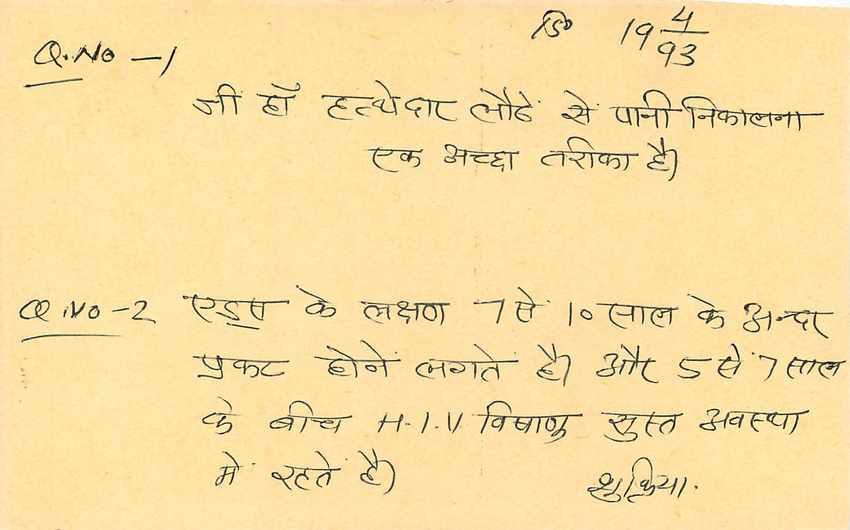 डि० 19 4/93
Q.No -1
जी हाँ हत्थेदार लौटें से पानी निकालना
एक अच्छा तरीका है।
Q.No -2 एड्स के लक्षण 7 से 10 साल के अन्दर
प्रकट होने लगते है। और 5 से 7 साल
के बीच H.I.V विषाणु सुस्त अवस्था
में रहते है।
शुक्रिया.